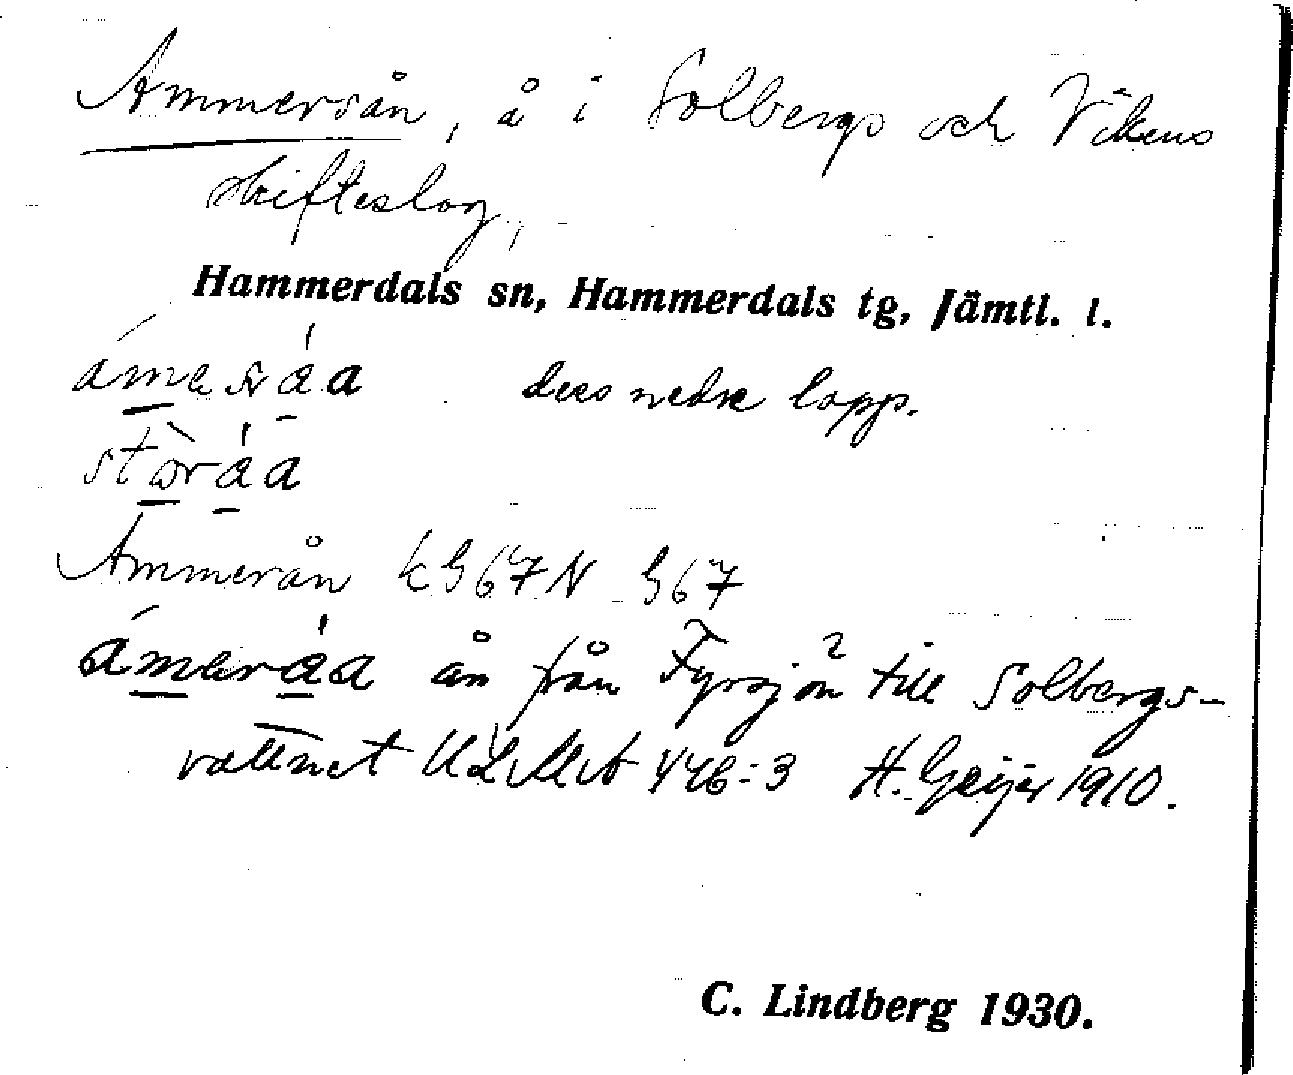 Ammersån, å i Solbergs och Vikens
skifteslag,
Hammerdals sn, Hammerdals tg, Jämtl. l.
dess nedre lopp.
Ammerån k G67N G67
ån från Fyrsjön till Solbergs-
vattnet ULMA 446:3 H. Geijer 1910.
C. Lindberg 1930.